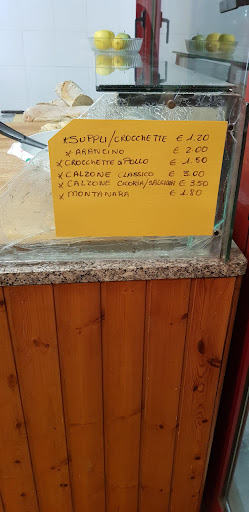 *SUPPLI/CROCCHETTE € 1.20
x ARANCINO € 2.00
x CROCCHETTE di POLLO € 1.50
x CALZONE CLASSICO € 3.00
x CALZONE CICORIA/SALSICCIA € 3.50
x MONTANARA € 1.80